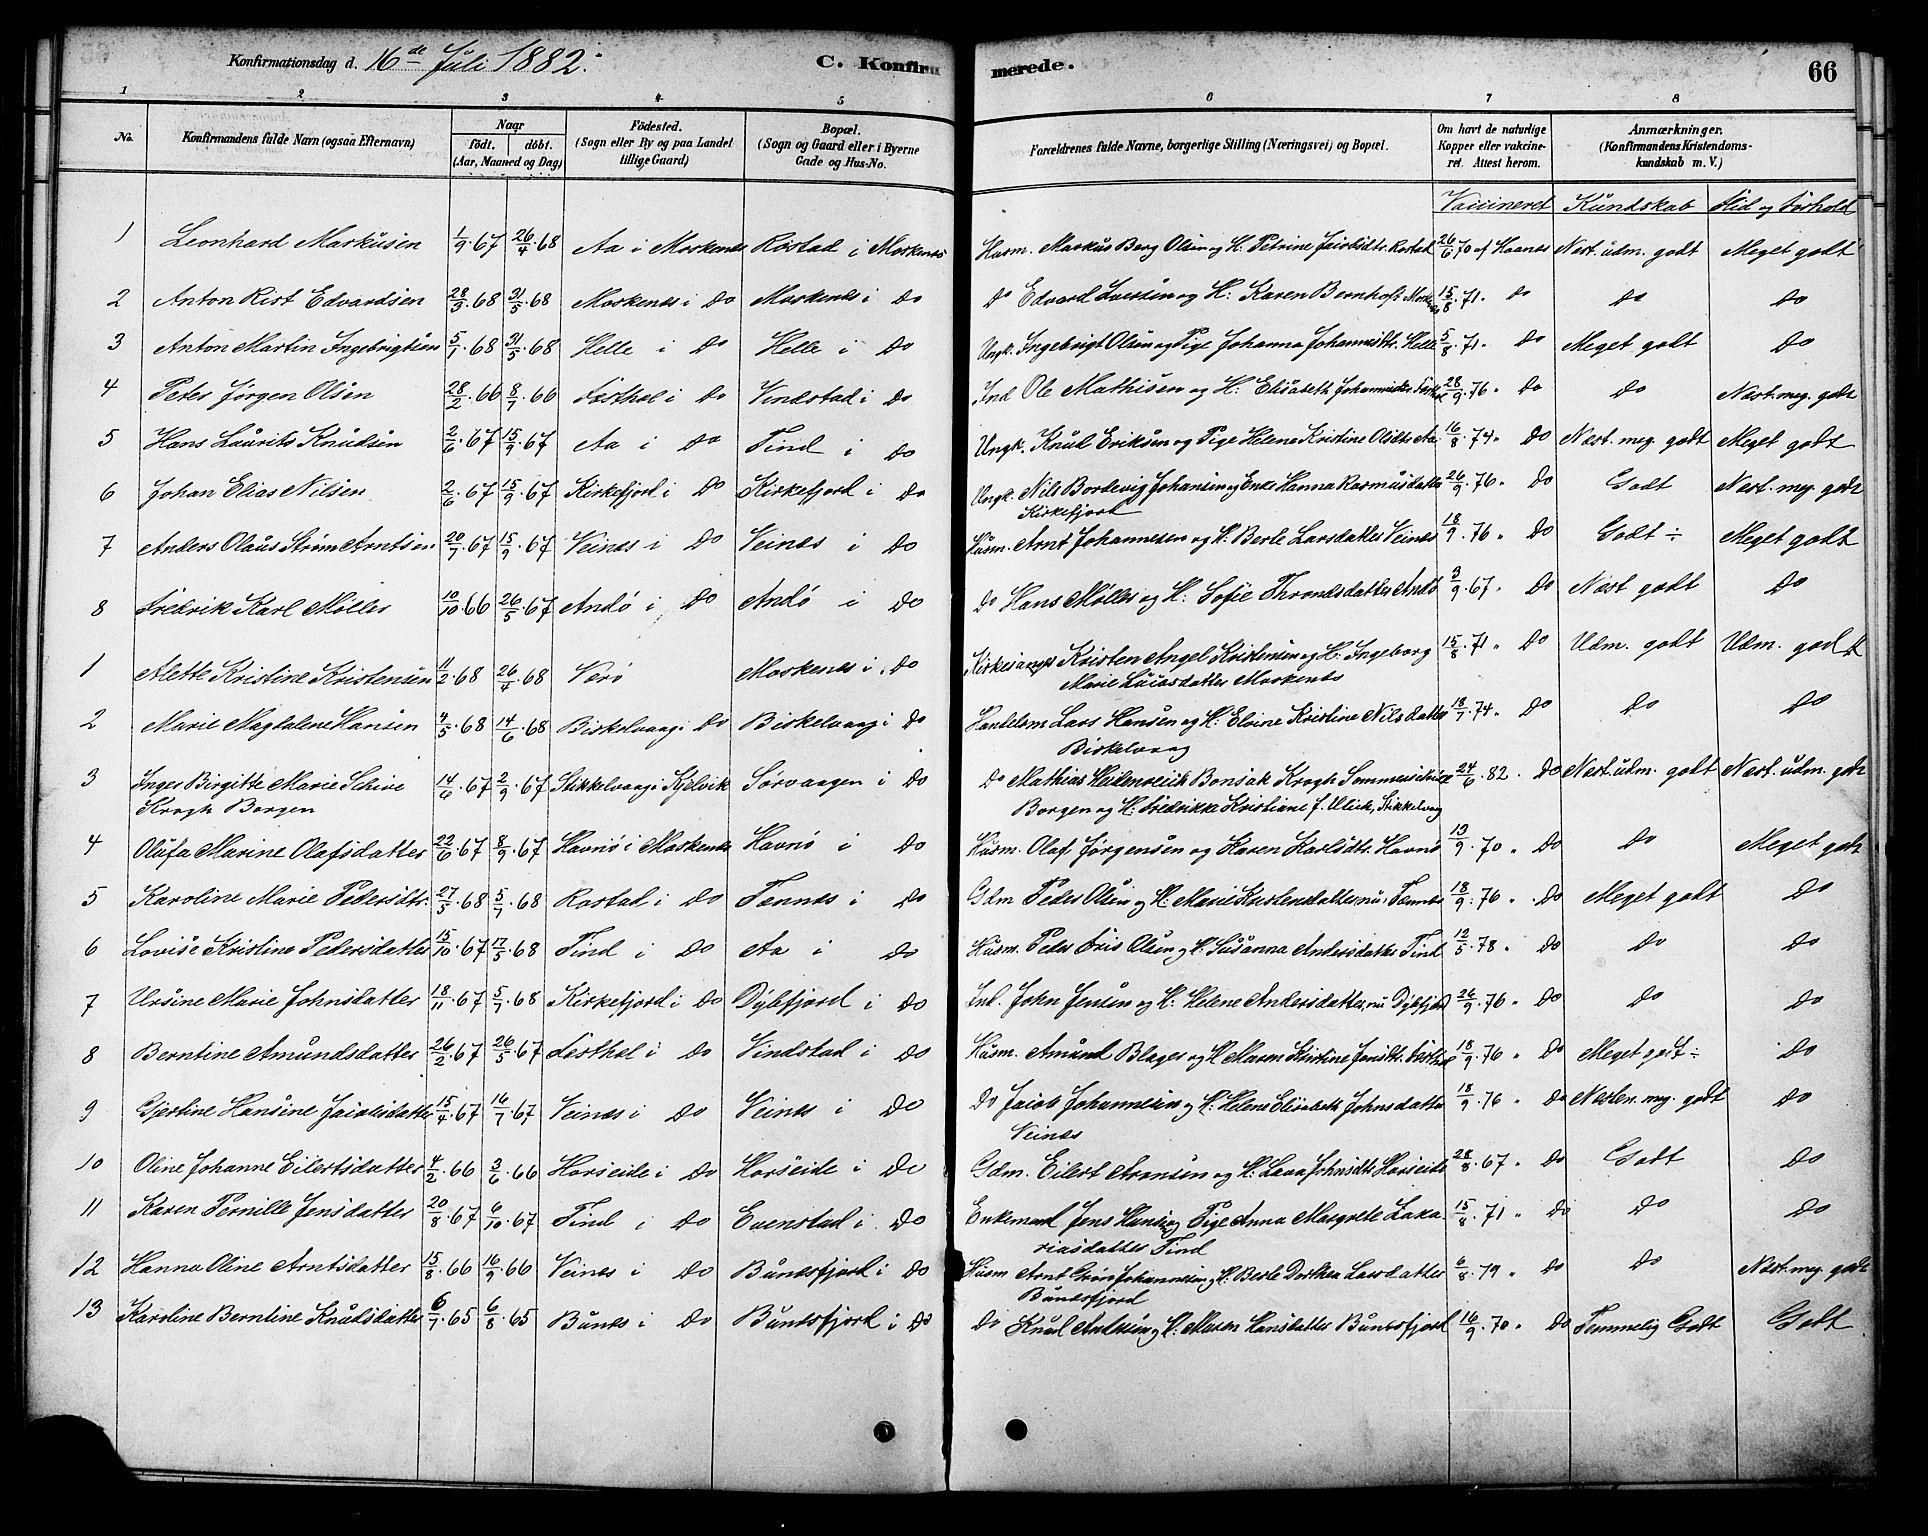 Konfirmationsdag d. 16de Juli 1882.
C. Konfirmerede.
66
1 2 3 4 5 6 7 8
No. Konfirmandens fulde Navn (ogsaa Efternavn) Naar født. døbt. (Aar, Maaned og Dag) Fødested. (Sogn eller By og paa Landet tillige Gaard) Bopæl. (Sogn og Gaard eller i Byerne Gade og Hus-No. Forældrenes fulde Navne, borgerlige Stilling (Næringsvei) og Bopæl. Om havt de naturlige Kopper eller vakcineret. Attest herom. Anmærkninger. (Konfirmandens Kristendomskundskab m. V.)
Vaccineret Kundskab Flid og Forhold
1 Leonhard Markusen 1/9.67 26/4.68 Aa i Moskenes Rostad i Moskenes Husm. Markus Berg Olsen og H. Petrine Jacobsdtr. Rostad 26/6 70 af Haanes Næst. udm. godt Meget godt
2 Anton Kist Edvardsen 28/3.68 31/5.68 Moskenes i Do Moskenes i Do Do Edvard Iversen og H: Karen Bernhoft 15/8.71. Do Do Do
3 Anton Martin Ingebrigtsen 5/1.68 31/5.68 Helle i Do Helle i Do Ungk. Ingebrigt Olsen og Pige Johanna Johannesdtr. Helle 5/8.71. Do Meget godt Do
4 Peter Jørgen Olsen 28/2.66 8/7.66 Festhel i Do Vindstad i Do Ind Ole Mathisen og H: Elisabeth 28/9.76. Do Do Næst. meg. godt
5 Hans Laurits Knudsen 2/6.67 15/9.67 Aa i Do Tind i Do Ungk. Knud Eriksen og Pige Helene Kristine Olsdtr. Aa 16/8.74. Do Næst. meg. godt Meget godt
6 Johan Elias Nilsen 2/6.67 15/9.67 Kirkefjord i Do Kirkefjord i Do Ungk. Nils Bordevig Johansen og Enke Hanna Rasmusdatter 26/9.76. Do Godt Næst. meg. godt
Kirkefjord
7 Anders Olaus Strøm Arntsen 20/7.67 15/9.67 Veines i Do Veines i Do Husm. Arnt Johannesen og H. Berle Larsdatter Veines 18/9.76. Do Godt ÷ Meget godt
8 Fredrik Karl Møller 10/10.66 26/5.67 Andö i Do Andö i Do Do Hans Møller og H. Sofie Thronesdatter Andö 3/9.67. Do Næst godt Do
1 Alette Kristine Kristensen 11/2.68 26/4.68 Verö Moskenes i Do Kirkesanger Kristen Angel Kristensen og H. Ingeborg 15/8.71. Do Udm. godt Udm. godt
Marie Lucasdatter Moskenes
2 Marie Magdalene Hansen 4/5.68 14/6.68 Biskelvaag i Do Biskelvaag i Do Handelsm Lars Hansen og H: Elvine Kristine Nilsdatter 18/7.74. Do Do Do
Biskelvaag
3 Inger Birgitte Marie Schive 14/6.67 2/9.67 Stikkelvaag i Kjelvik Sørvaagen i Do Do Mathias Heidenreich Bonsak Krogh 24/6.82. Do Næst. udm. godt Næst. udm. godt
Krogh Borgen Borgen og H. Fredrikke Kristiane f. Ulich, Stikkelvaag
4 Olufa Marine Olafsdatter 22/6.67 8/9.67 Havnö i Moskenes Havnö i Do Husm. Olaf Jørgensen og Karen Karlsdtr. Havnö 13/9.70. Do Do Meget godt
5 Karoline Marie Pedersdtr. 27/5.68 5/7.68 Rostad i Do Tennes i Do Gdm Peder Olsen og H. Marie Kristensdatter, nu: Tennes 18/9.76. Do Meget godt Do
6 Lovise Kristine Pedersdatter 15/10.67 17/5.68 Tind i Do Aa i Do Husm. Peder Friis Olsen og H. Susanna Andersdatter Tind 12/5.78. Do Do Do
7 Ursine Marie Johnsdatter 18/11.67 5/7.68 Kirkefjord i Do Dybfjord i Do Ind. John Jensen og H: Helene Andersdatter, nu Dybfjord 26/9.76. Do Do Do
8 Berntine Amundsdatter 26/2.67 26/5.67 Festhel i Do Vindstad i Do Husm. Amund Blager og H Maren Kristine Jensdtr. Festhel 18/9.76. Do Meget godt ÷ Do
9 Gjertine Hansine Jacobsdatter 15/4.67 16/7.67 Veines i Do Veines i Do Do Jacob Johannesen og H. Helene Elisabeth Johnsdatter 18/9.76. Do Næsten. meg. godt Do
Veines
10 Oline Johanne Eilertsdatter 4/2.66 3/6.66 Horseide i Do Horseide i Do Gdm. Eilert Aronsen og H. Lava Johnsdtr. Horseide 28/8.67. Do Godt Do
11 Karen Pernille Jensdatter 20/8.67 6/10.67 Tind i Do Evenstad i Do Enkemand Jens Hansen og Pige Anna Margrete Zaka 15/8.71. Do Do Do
riasdatter Tind
12 Hanna Oline Arntsdatter 15/8.66 16/9.66 Veines i Do Bunesfjord i Do Husm Arnt Johannesen og H. Berle Dorthea Larsdatter 6/8.79. Do Do Næst. meg. godt
Bunesfjord
13 Karoline Berntine Knudsdatter 6/7.65 6/8.65 Bunes i Do Bunesfjord i Do Do Knud Andersen og H. Maren Hansdatter Bunesfjord 16/9.70. Do Temmelig Godt Godt